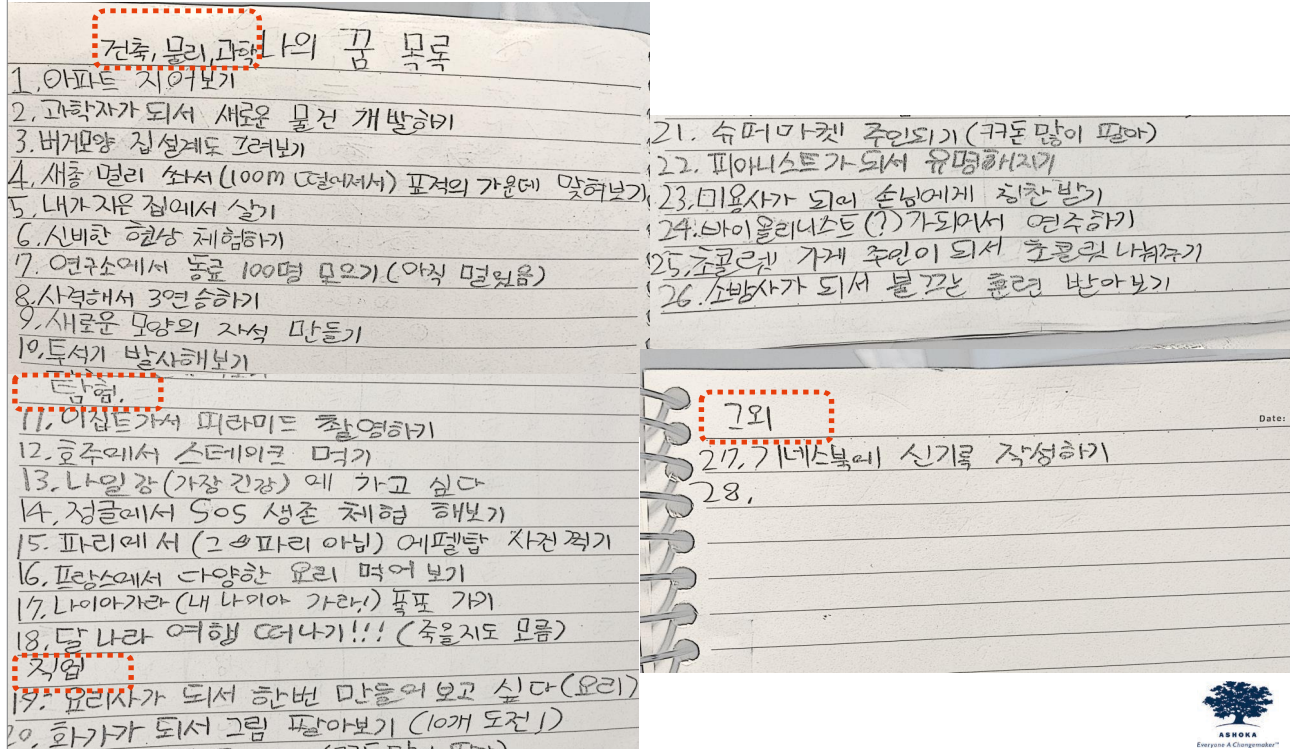 건축, 물리, 과학 나의 꿈 목록
1. 아파트 지어보기
2. 과학자가 되서 새로운 물건 개발하기
3. 버거모양 집 설계도 그려보기
4. 새총 멀리 쏴서 (100m 떨어져서) 표적의 가운데 맞혀보기
5. 내가 지은 집에서 살기
6. 신비한 현상 체험하기
7. 연구소에서 동료 100명 모으기 (아직 멀었음)
8. 사격해서 3연승하기
9. 새로운 모양의 자석 만들기
10. 투석기 발사해보기
탐험.
11. 이집트가서 피라미드 촬영하기
12. 호주에서 스테이크 먹기
13. 나일강 (가장 긴강) 에 가고 싶다
14. 정글에서 SOS 생존 체험 해보기
15. 파리에서 (그 파리 아님) 에펠탑 사진 찍기
16. 프랑스에서 다양한 요리 먹어 보기
17. 나이아가라 (내 나이야 가라!) 폭포 가기
18. 달 나라 여행 떠나기!!! (죽을지도 모름)
직업
19. 요리사가 되서 한번 만들어 보고 싶다 (요리)
20. 화가가 되서 그림 팔아보기 (10개 도전!)
21. 슈퍼마켓 주인되기 (ㅋㅋ돈 많이 팔아)
22. 피아니스트가 되서 유명해지기
23. 미용사가 되어 손님에게 칭찬받기
24. 바이올리니스트 (?) 가되어서 연주하기
25. 초콜렛 가게 주인이 되서 초콜릿 나눠주기
26. 소방사가 되서 불끄는 훈련 받아보기
그외
Date:
27. 기네스북에 신기록 작성하기
28.
ASHOKA
Everyone A Changemaker™